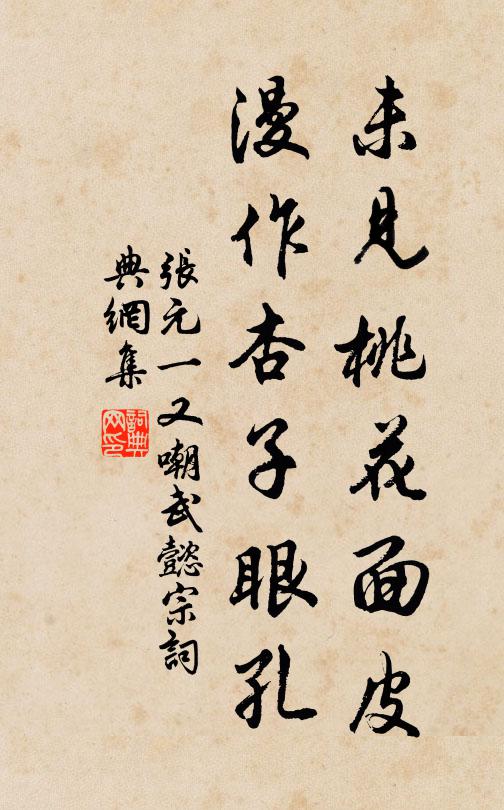 未見桃花面皮
漫作杏子眼孔
張元一又嘲武懿宗詞
典網集
詞典网印